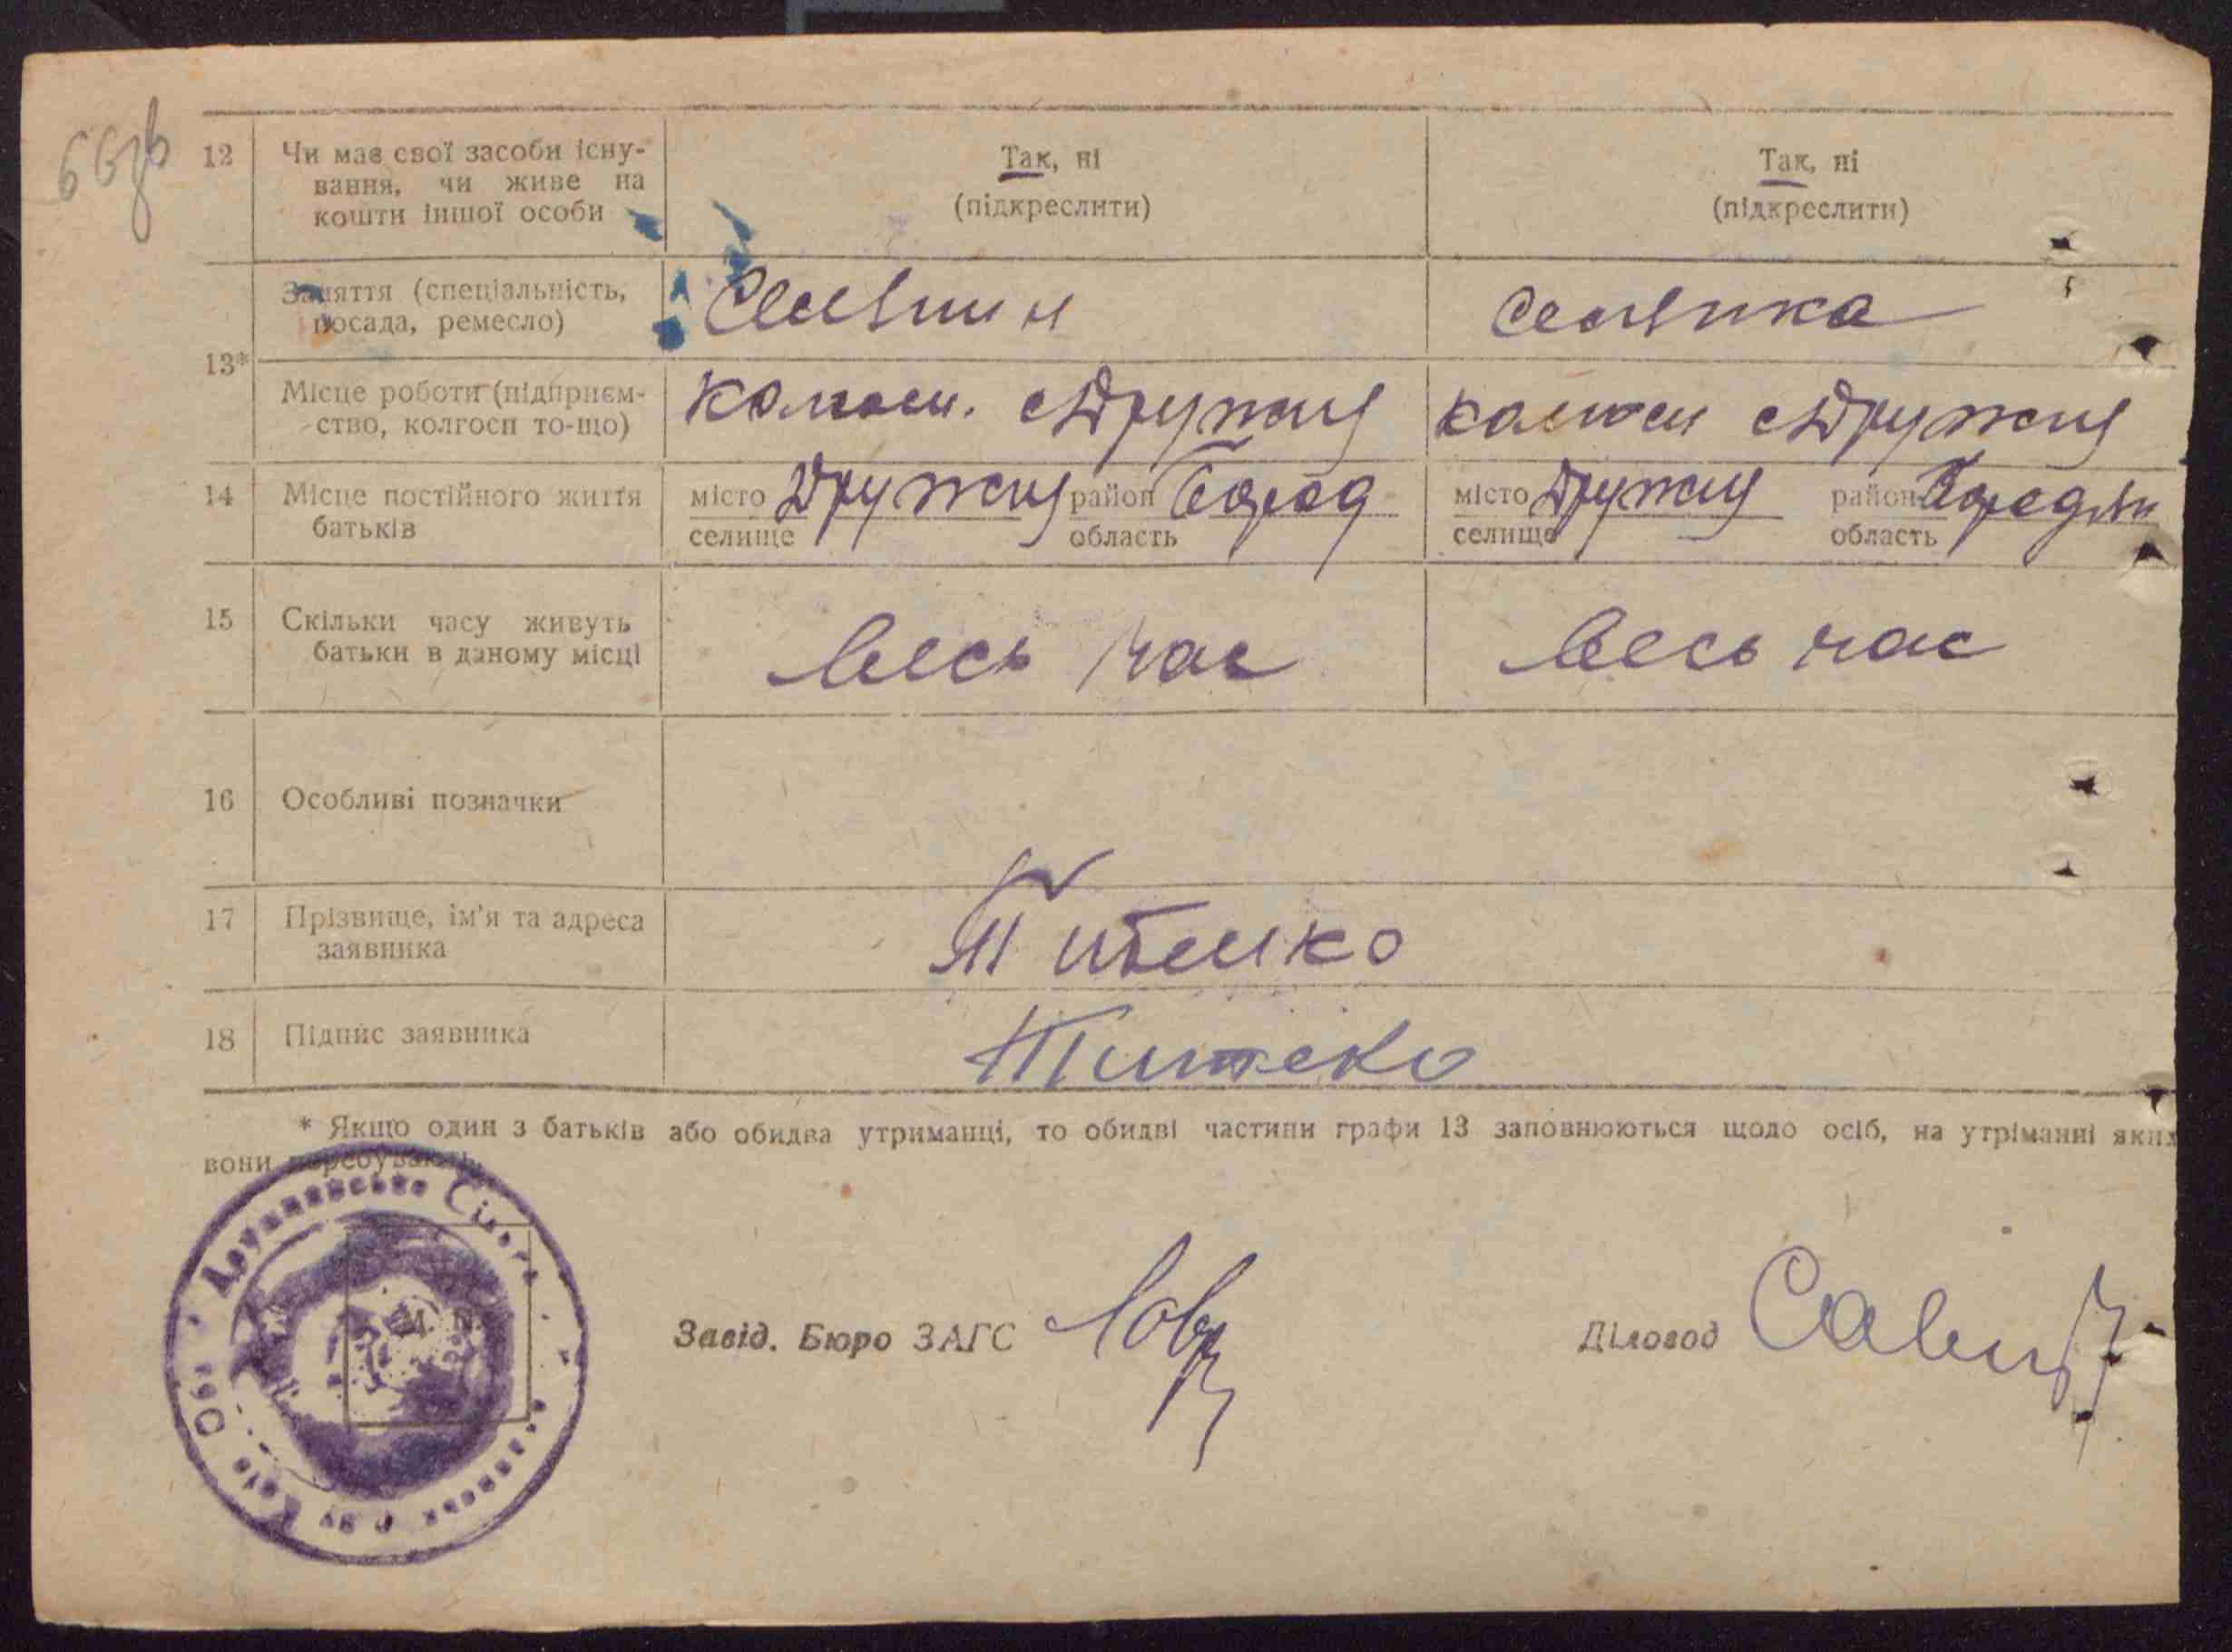 66зв
12 Чи має свої засоби існу-
вання, чи живе на
кошти іншої особи
Так, ні
(підкреслити)
Так, ні
(підкреслити)
13*
Заняття (спеціальність,
посада, ремесло)
Селянин
селянка
Місце роботи (підприєм-
ство, колгосп то-що)
колгосп. с Дружня
колгосп с Дружня
14 Місце постійного життя
батьків
місто Дружня район Бород
селище область
місто Дружня район Бородян
селище область
15 Скільки часу живуть
батьки в даному місці
весь час
весь час
16 Особливі позначки
17 Прізвище, ім'я та адреса
заявника
Титенко
18 Підпис заявника
Титеко
* Якщо один з батьків або обидва утриманці, то обидві частини графи 13 заповнюються щодо осіб, на утріманні яких
вони перебувають.
Завід. Бюро ЗАГС
Діловод